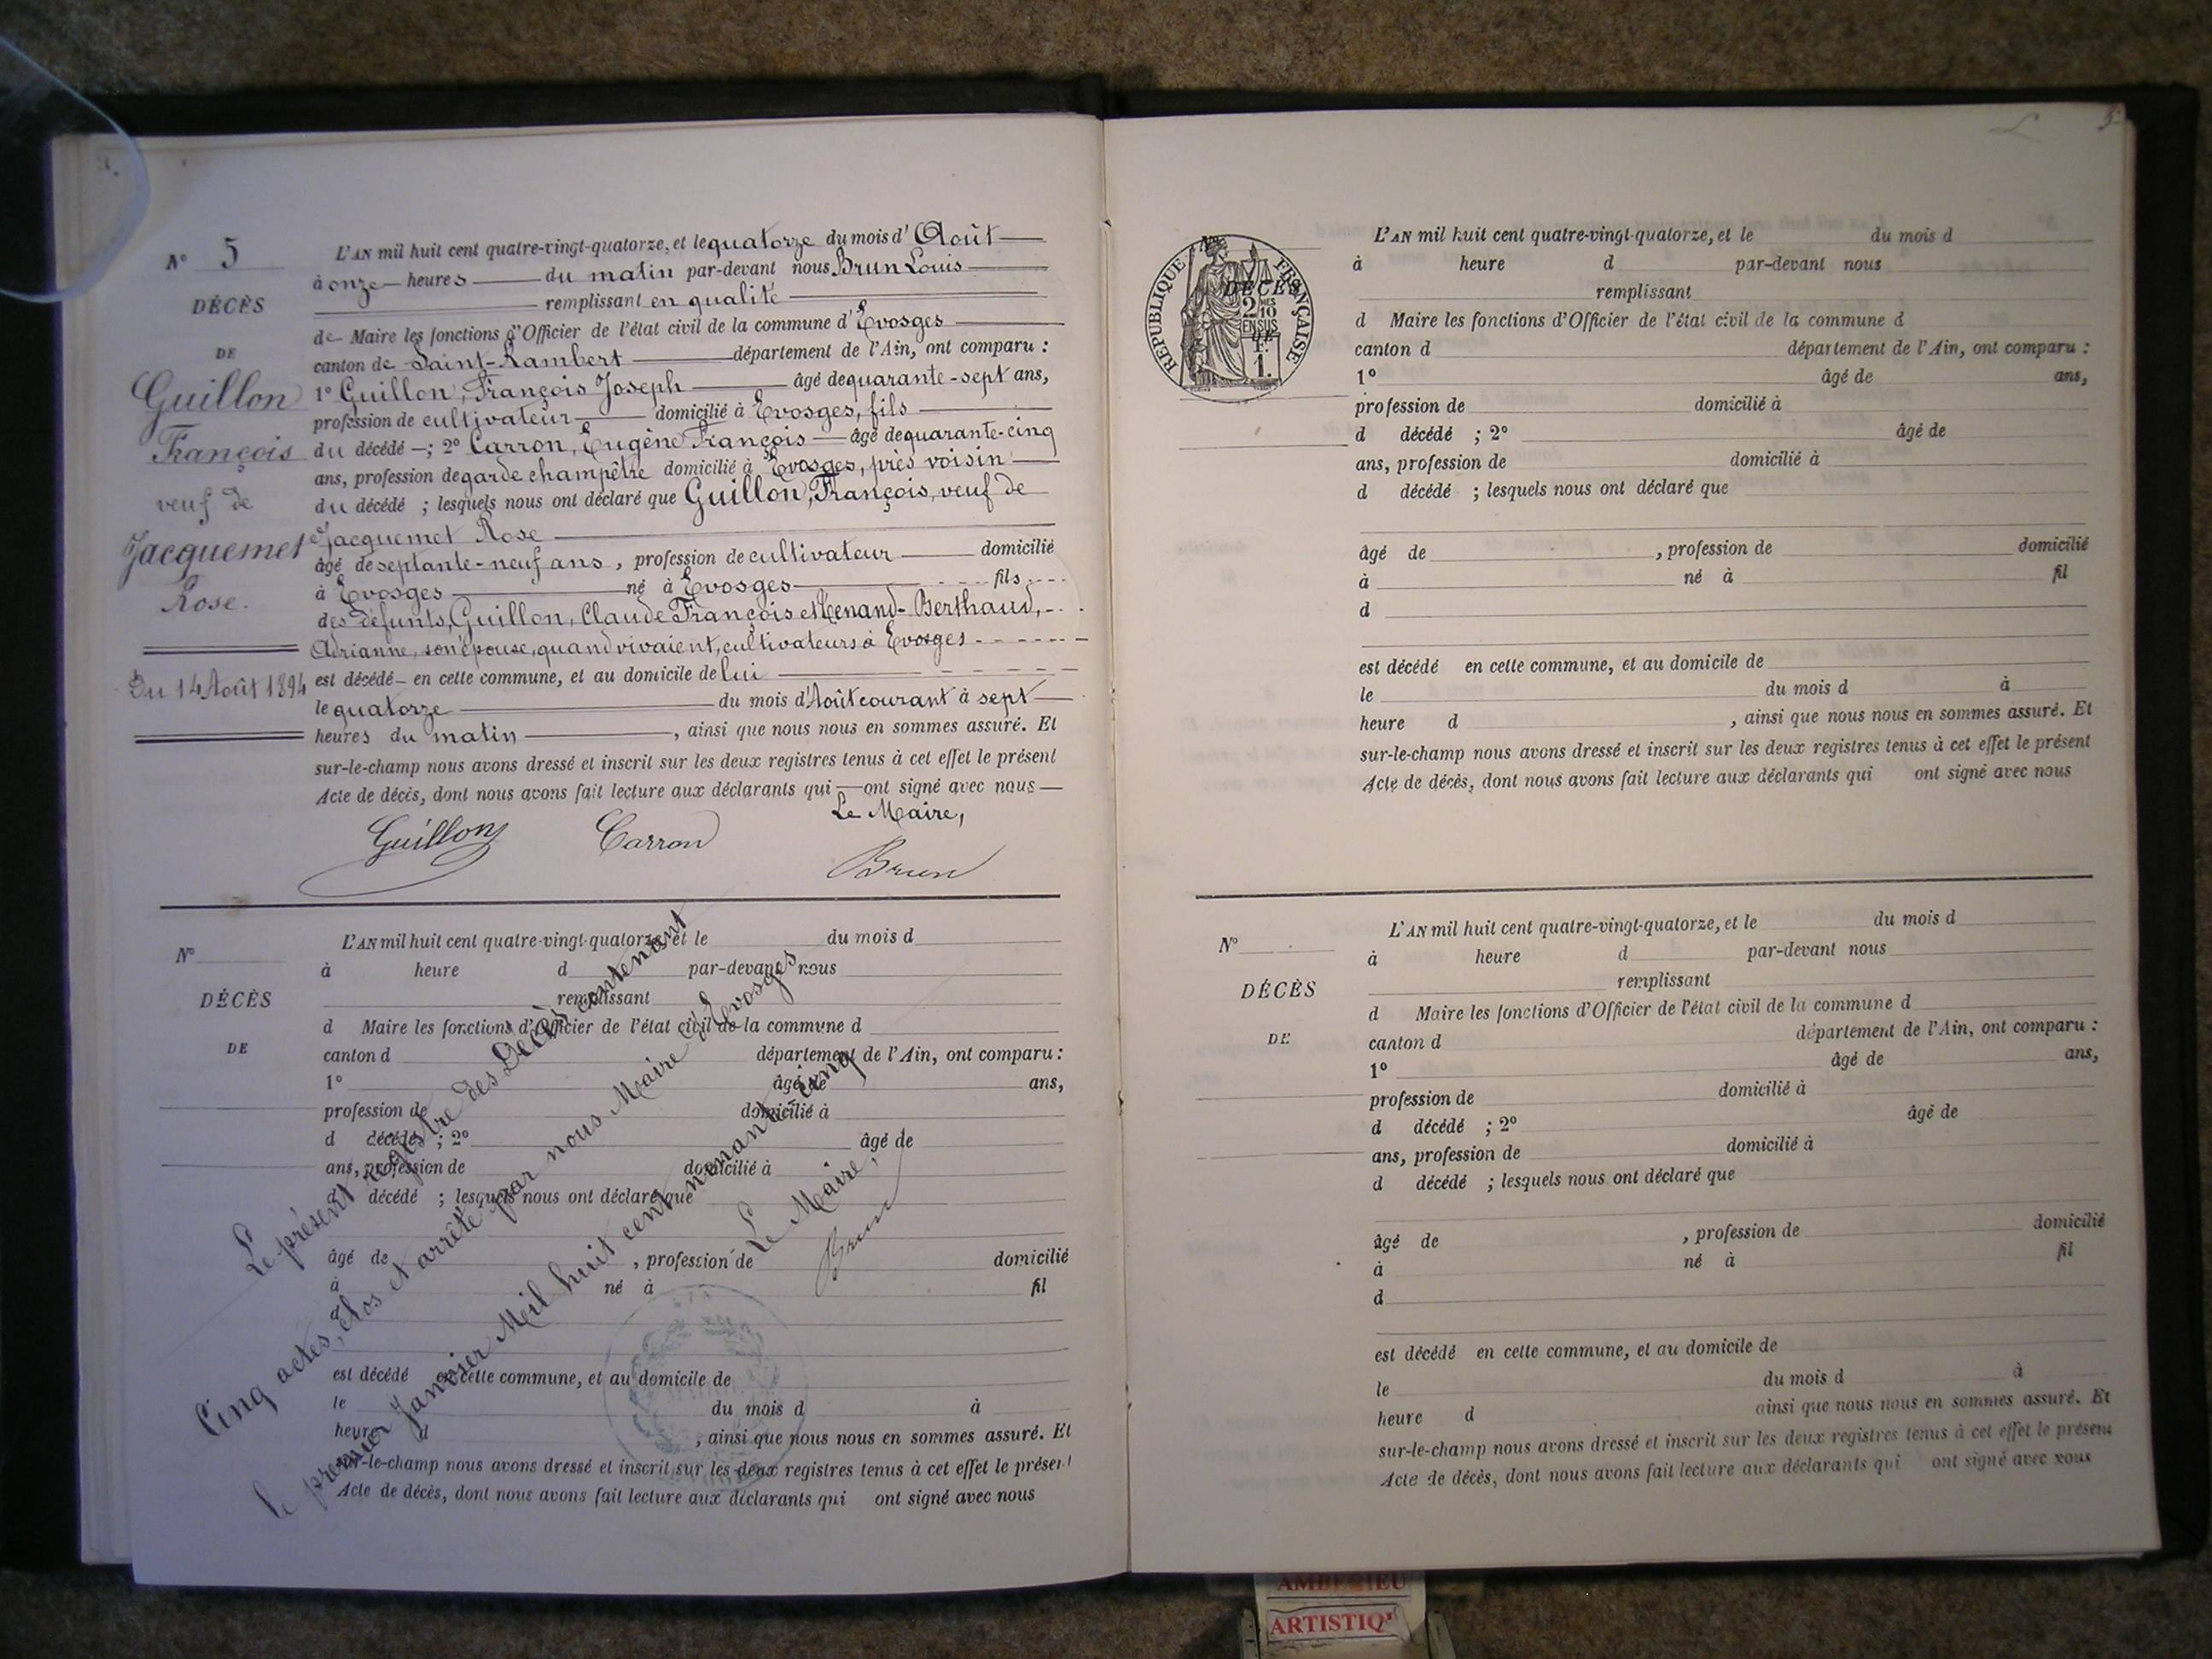 N° 5
DÉCÈS
DE
Guillon
François
veuf de
Jacquemet
Rose.
Du 14 Août 1894
L'AN mil huit cent quatre-vingt-quatorze, et le quatorze du mois d' Août
à onze heures du matin par-devant nous Brun Louis
remplissant en qualité
de Maire les fonctions d'Officier de l'état civil de la commune d' Evosges
canton de Saint-Rambert département de l'Ain, ont comparu :
1° Guillon, François Joseph âgé de quarante-sept ans,
profession de cultivateur domicilié à Evosges, fils
du décédé ; 2° Carron, Eugène François âgé de quarante-cinq
ans, profession de garde champêtre domicilié à Evosges, près voisin
du décédé ; lesquels nous ont déclaré que Guillon, François, veuf de
Jacquemet Rose
âgé de septante-neuf ans, profession de cultivateur domicilié
à Evosges né à Evosges fils
des défunts, Guillon, Claude François et Tenand-Berthaud,
Adrianne, son épouse, quand vivaient, cultivateurs à Evosges
est décédé en cette commune, et au domicile de lui
le quatorze du mois d'Août courant à sept
heures du matin, ainsi que nous nous en sommes assuré. Et
sur-le-champ nous avons dressé et inscrit sur les deux registres tenus à cet effet le présent
Acte de décès, dont nous avons fait lecture aux déclarants qui ont signé avec nous
Le Maire,
Guillon Carron Brun
N°
DÉCÈS
DE
L'AN mil huit cent quatre-vingt-quatorze, et le du mois d
à heure d par-devant nous
remplissant
d Maire les fonctions d'Officier de l'état civil de la commune d
canton d département de l'Ain, ont comparu :
1° âgé de ans,
profession de domicilié à
d décédé ; 2° âgé de
ans, profession de domicilié à
d décédé ; lesquels nous ont déclaré que
âgé de , profession de domicilié
à né à fil
d
est décédé en cette commune, et au domicile de
le du mois d à
heure d , ainsi que nous nous en sommes assuré. Et
sur-le-champ nous avons dressé et inscrit sur les deux registres tenus à cet effet le présent
Acte de décès, dont nous avons fait lecture aux déclarants qui ont signé avec nous
Le présent registre des Décès contenant
Cinq actes, clos et arrêté par nous Maire d'Evosges
le premier Janvier Mil huit cent nonante-cinq
Le Maire,
Brun
5
N°
DÉCÈS
DE
RÉPUBLIQUE FRANÇAISE
2 MES
10
EN SUS
F.
1.
L'AN mil huit cent quatre-vingt-quatorze, et le du mois d
à heure d par-devant nous
remplissant
d Maire les fonctions d'Officier de l'état civil de la commune d
canton d département de l'Ain, ont comparu :
1° âgé de ans,
profession de domicilié à
d décédé ; 2° âgé de
ans, profession de domicilié à
d décédé ; lesquels nous ont déclaré que
âgé de , profession de domicilié
à né à fil
d
est décédé en cette commune, et au domicile de
le du mois d à
heure d , ainsi que nous nous en sommes assuré. Et
sur-le-champ nous avons dressé et inscrit sur les deux registres tenus à cet effet le présent
Acte de décès, dont nous avons fait lecture aux déclarants qui ont signé avec nous
N°
DÉCÈS
DE
L'AN mil huit cent quatre-vingt-quatorze, et le du mois d
à heure d par-devant nous
remplissant
d Maire les fonctions d'Officier de l'état civil de la commune d
canton d département de l'Ain, ont comparu :
1° âgé de ans,
profession de domicilié à
d décédé ; 2° âgé de
ans, profession de domicilié à
d décédé ; lesquels nous ont déclaré que
âgé de , profession de domicilié
à né à fil
d
est décédé en cette commune, et au domicile de
le du mois d à
heure d ainsi que nous nous en sommes assuré. Et
sur-le-champ nous avons dressé et inscrit sur les deux registres tenus à cet effet le présent
Acte de décès, dont nous avons fait lecture aux déclarants qui ont signé avec nous
AMBERIEU
ARTISTIQ